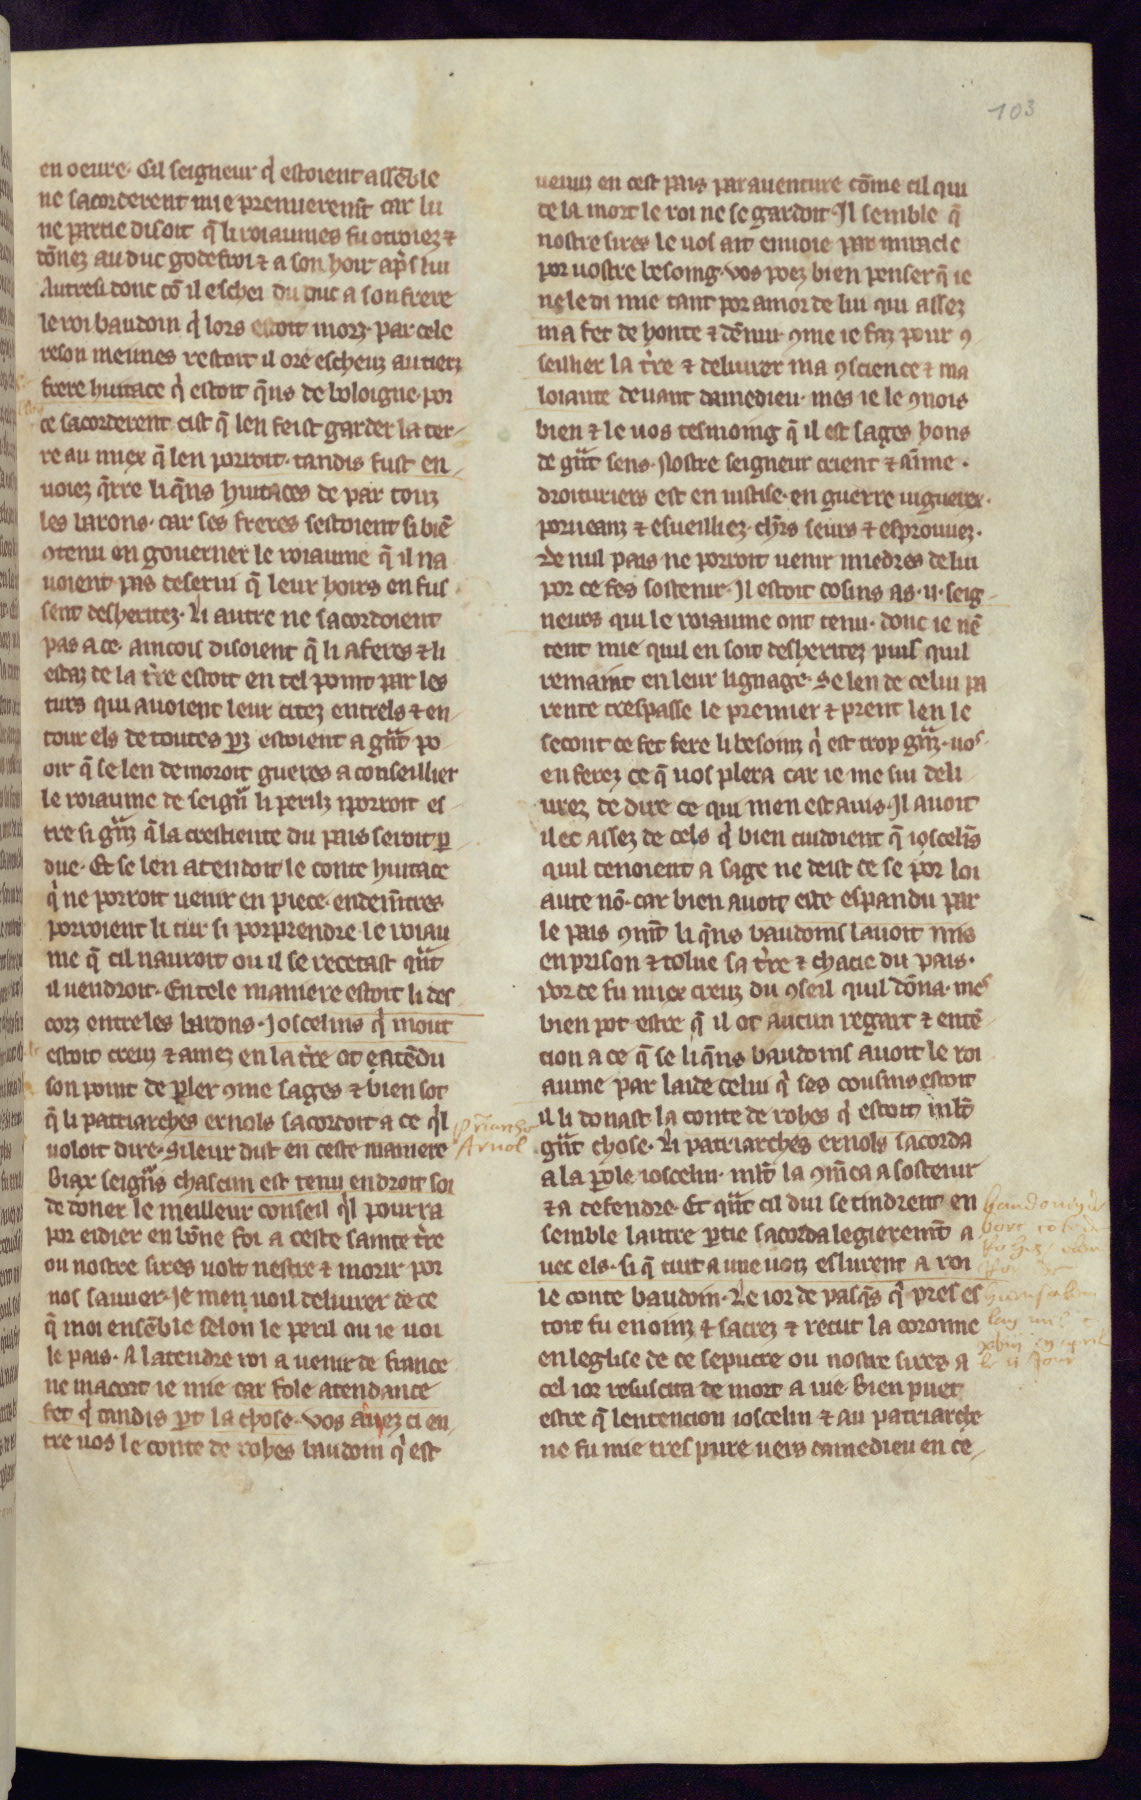 103
en oeure. Cil seigneur q̉ estoient assēble
ne sacorderent mie premierem̄t car lu
ne partie disoit q̄ li roiaumes fu otroiez ⁊
dōnez au duc godefroi ⁊ a son hoir ap̄s lui
Autresi donc cō il eschei du duc a son frere
le roi baudoin q̉ lors estoit morz. par cele
reson meismes restoit il ore escheuz au tierz
frere huitace q̉ estoit q̄ns de boloigne. por
ce sacorderent cist q̄ len feist garder la ter-
re au miex q̄ len porroit. tandis fust en-
voiez q̄rre li q̄ns huitaces de par touz
les barons. car ses freres sestoient si biē
ꝯtenu en gouerner le roiaume q̄ il na
voient pas deserui q̄ leur hoirs en fus
sent desheritez. Li autre ne sacordoient
pas a ce. aincois disoient q̄ li aferes ⁊ li
estaz de la t̄re estoit en tel point par les
turs qui auoient leur citez entrels ⁊ en-
tour els de toutes ꝑz estoient a gn̄t po-
oir q̄ se len demoroit gueres a conseillier
le roiaume de seign̄ li perilz i porroit es-
tre si gn̄z q̄ la crestiente du pais seroit ꝑ
due. Et se len atendoit le conte huitace
q̉ ne porroit uenir en piece. endem̄tres
porroient li tur si porprendre le roiau
me q̄ cil nauroit ou il se recetast qn̄t
il uendroit. En tele maniere estoit li des
corz entre les barons. Joscelins q̉ mout
estoit creuz ⁊ amez en la t̄re ot entēdu
son point de ꝑler ꝯme sages ⁊ bien sot
q̄ li patriarches ernols sacordoit a ce q̉l
uoloit dire. Si leur dist en ceste maniere
Biax seign̄s chascun est tenu endroit soi
de doner le meilleur conseil q̉l pourra
por eidier en bōne foi a ceste sainte t̄re
ou nostre sires uolt nestre ⁊ morir por
nos sauuer. Je men uoil deliurer de ce
q̄ moi ensēble selon le peril ou ie uoi
le pais. A latendre roi a uenir de france
ne macort ie mie car fole atendance
fet q̉ tandis ꝑt la chose. Vos auez ci en-
tre uos le conte de rohes baudoin q̉ est
Arnol
uenuz en cest pais par auenture cōme cil qui
de la mort le roi ne se gardoit. Il semble q̄
nostre sires le uos ait enuoie par miracle
por uostre besoing. Vos poez bien penser q̄ ie
ne le di mie tant por amor de lui qui assez
ma fet de honte ⁊ dēnui. ꝯme ie faz pour ꝯ
seillier la t̄re ⁊ deliurer ma ꝯscience ⁊ ma
loiaute deuant damedieu. mes ie le ꝯnois
bien ⁊ le uos tesmoing q̄ il est sages hons
de gn̄t sens. Nostre seigneur crient ⁊ aīme.
droituriers est en iustise. en guerre uiguerex.
porueanz ⁊ esueilliez. ch̄rs seurs ⁊ esprouuez.
De nul pais ne porroit uenir miedres de lui
por ce fes sostenir. Il estoit cosins as .ii. seig-
neurs qui le roiaume ont tenu. donc ie nē
tent mie quil en soit desheritez puis quil
remaint en leur lignage. Se len de celui pa
rente trespasse le premier ⁊ prent len le
secont ce fet fere li besoinz q̉ est trop gn̄z. uos
en ferez ce q̄ uos plera car ie me sui deli
urez de dire ce qui men est auis. Il auoit
ilec assez de cels q̉ bien cuidoient q̄ ioscelīs
quil tenoient a sage ne deist ce se por loi
aute nō. car bien auoit este espandu par
le pais ꝯm̄t li q̄ns baudoins lauoit mis
en prison ⁊ tolue sa t̄re ⁊ chacie du pais.
Por ce fu miex creuz du ꝯseil quil dōna. mes
bien pot estre q̄ il ot aucun regart ⁊ entē-
cion a ce q̄ se li q̄ns baudoins auoit le roi
aume par laide celui q̉ ses cousins estoit
il li donast la conte de rohes q̉ estoit ml̄t
gn̄t chose. Li patriarches ernols sacorda
a la ꝑole ioscelin. ml̄t la ꝯm̄ca a sostenir
⁊ a defendre. Et qn̄t cil dui se tindrent en
semble lautre ꝑtie sacorda legierem̄t a
uec els. si q̄ tuit a une uoiz eslurent a roi
le conte baudoin. Le ior de pasq̄s q̉ pres es
toit fu enoinz ⁊ sacrez ⁊ recut la coronne
en leglise de ce sepucre ou nostre sires a
cel ior resuscita de mort a uie. Bien puet
estre q̄ lentencion ioscelin ⁊ au patriarche
ne fu mie tres pure uers damedieu en ce-